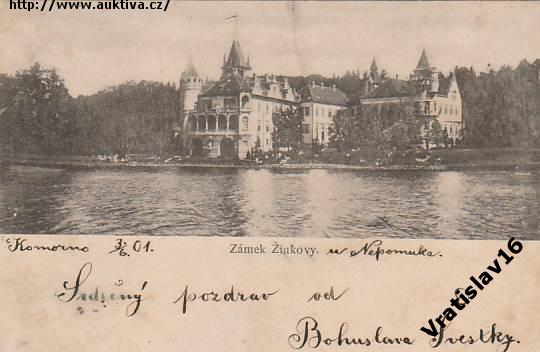 http://www.auktiva.cz/
Komorno 3/6 01. Zámek Žinkovy. u Nepomuka.
Srdečný pozdrav od
Bohuslava Svestky.
Vratislav16